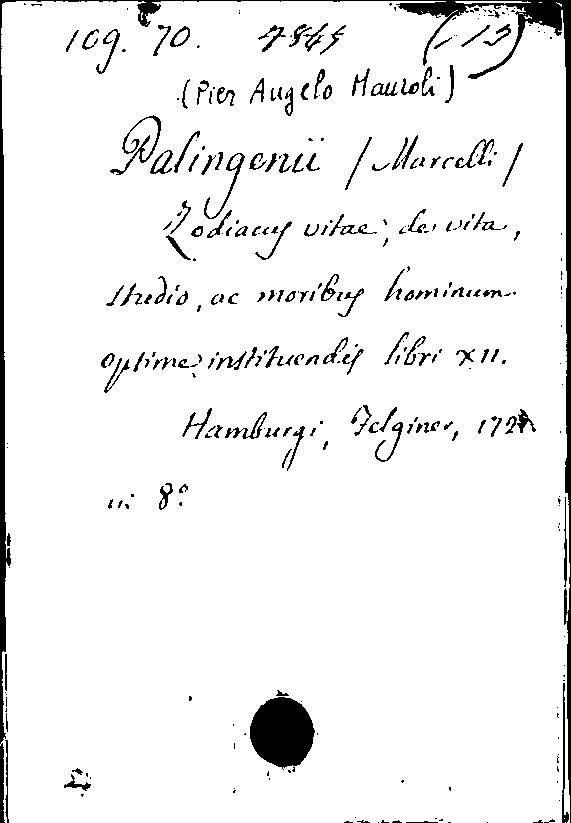 109. 70. 4865 (-13)
(Pier Angelo Mauzoli)
Palingenii /Marcelli/
Zodiacus vitae, de vita,
studio, ac moribus hominum
optime instituendis libri XII.
Hamburgi, Felginer,
in 8°